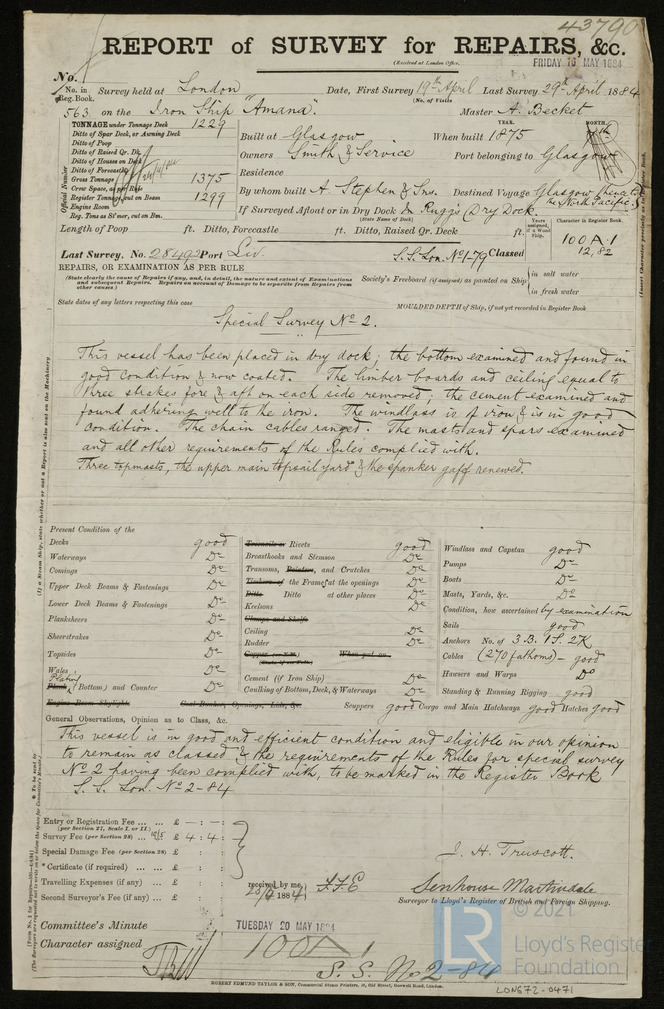 43790
REPORT of SURVEY for REPAIRS, &c.
(Received at London Office, FRIDAY 16 MAY 1884
No.
No. in Reg. Book. Survey held at London Date, First Survey 19th April Last Survey 29th April 1884
(No. of Visits
563 on the Iron Ship "Amana". Master A. Becket
TONNAGE under Tonnage Deck 1229
Ditto of Spar Deck, or Awning Deck
Ditto of Poop
Ditto of Raised Qr. Dk.
Ditto of Houses on Deck
Ditto of Forecastle
Gross Tonnage 1375
Crew Space, as per Rule
Register Tonnage, cut on Beam 1299
Engine Room
Reg. Tons as St'mer, cut on Bm.
Official Number
YEAR. MONTH.
Built at Glasgow When built 1875 7th
Owners Smith & Service Port belonging to Glasgow
Residence
By whom built A. Stephen & Sns. Destined Voyage Glasgow thence to the North Pacific
If Surveyed Afloat or in Dry Dock In Rugg's Dry Dock.
(State Name of Dock)
Length of Poop ft. Ditto, Forecastle ft. Ditto, Raised Qr. Deck ft.
Years assigned, if a Wood Ship. Character in Register Book.
100 A. 1
12,82
Last Survey, No. 28492 Port Liv. S.S. Lon. No 1-79 Classed
REPAIRS, OR EXAMINATION AS PER RULE
(State clearly the cause of Repairs if any, and, in detail, the nature and extent of Examinations and subsequent Repairs. Repairs on account of Damage to be separate from Repairs from other causes.)
Society's Freeboard (if assigned) as painted on Ship's in salt water
in fresh water
State dates of any letters respecting this case
MOULDED DEPTH of Ship, if not yet recorded in Register Book
Special Survey No 2.
This vessel has been placed in dry dock; the bottom examined and found in
good condition & now coated. The limber boards and ceiling equal to
three strakes fore & aft on each side removed; the cement examined and
found adhering well to the iron. The windlass is of iron & is in good
condition. The chain cables ranged. The masts and spars examined
and all other requirements of the Rules complied with.
Three topmasts, the upper main topsail yard & the spanker gaff renewed.
Present Condition of the
Decks good
Waterways Do
Comings Do
Upper Deck Beams & Fastenings Do
Lower Deck Beams & Fastenings Do
Planksheers Do
Sheerstrakes Do
Topsides Do
Wales Do
Plating
Plank (Bottom) and Counter Do
Engine Room Skylights Coal Bunker, Openings, Lids, &c.
Treenails or Rivets good
Breasthooks and Stemson Do
Transoms, Pointers, and Crutches Do
Timbers of the Frame at the openings Do
Ditto Ditto at other places Do
Keelsons Do
Clamps and Shelfs
Ceiling Do
Rudder Do
Cement (if Iron Ship) Do
Caulking of Bottom, Deck, & Waterways Do
Scuppers good Cargo and Main Hatchways good Hatches good
Windlass and Capstan good
Pumps Do
Boats Do
Masts, Yards, &c. Do
Condition, how ascertained by examination
Sails good
Anchors No. of 3B. 1S. 2K
Cables (270 fathoms) - good
Hawsers and Warps Do
Standing & Running Rigging good
General Observations, Opinion as to Class, &c.
This vessel is in good and efficient condition and eligible in our opinion
to remain as classed & the requirements of the Rules for special survey
No 2 having been complied with, to be marked in the Register Book
S.S. Lon. No 2-84
Entry or Registration Fee ... ... £ - : - :
(per Section 27, Scale I. or II.)
Survey Fee (per Section 28) ... £ 4 : 4 :
Special Damage Fee (per Section 28) £ : :
* Certificate (if required) ... ... £ : :
Travelling Expenses (if any) ... £ : :
Second Surveyor's Fee (if any) ... £ : :
received by me,
1884
J. H. Truscott.
Senhouse Martindale
Surveyor to Lloyd's Register of British and Foreign Shipping.
Committee's Minute TUESDAY 20 MAY 1884
Character assigned 100A1
S.S. No 2-84
ROBERT EDMUND TAYLOR & SON, Commercial Steam Printers, 19, Old Street, Goswell Road, London.
LON672-0471
LR
© 2021
Lloyd's Register
Foundation